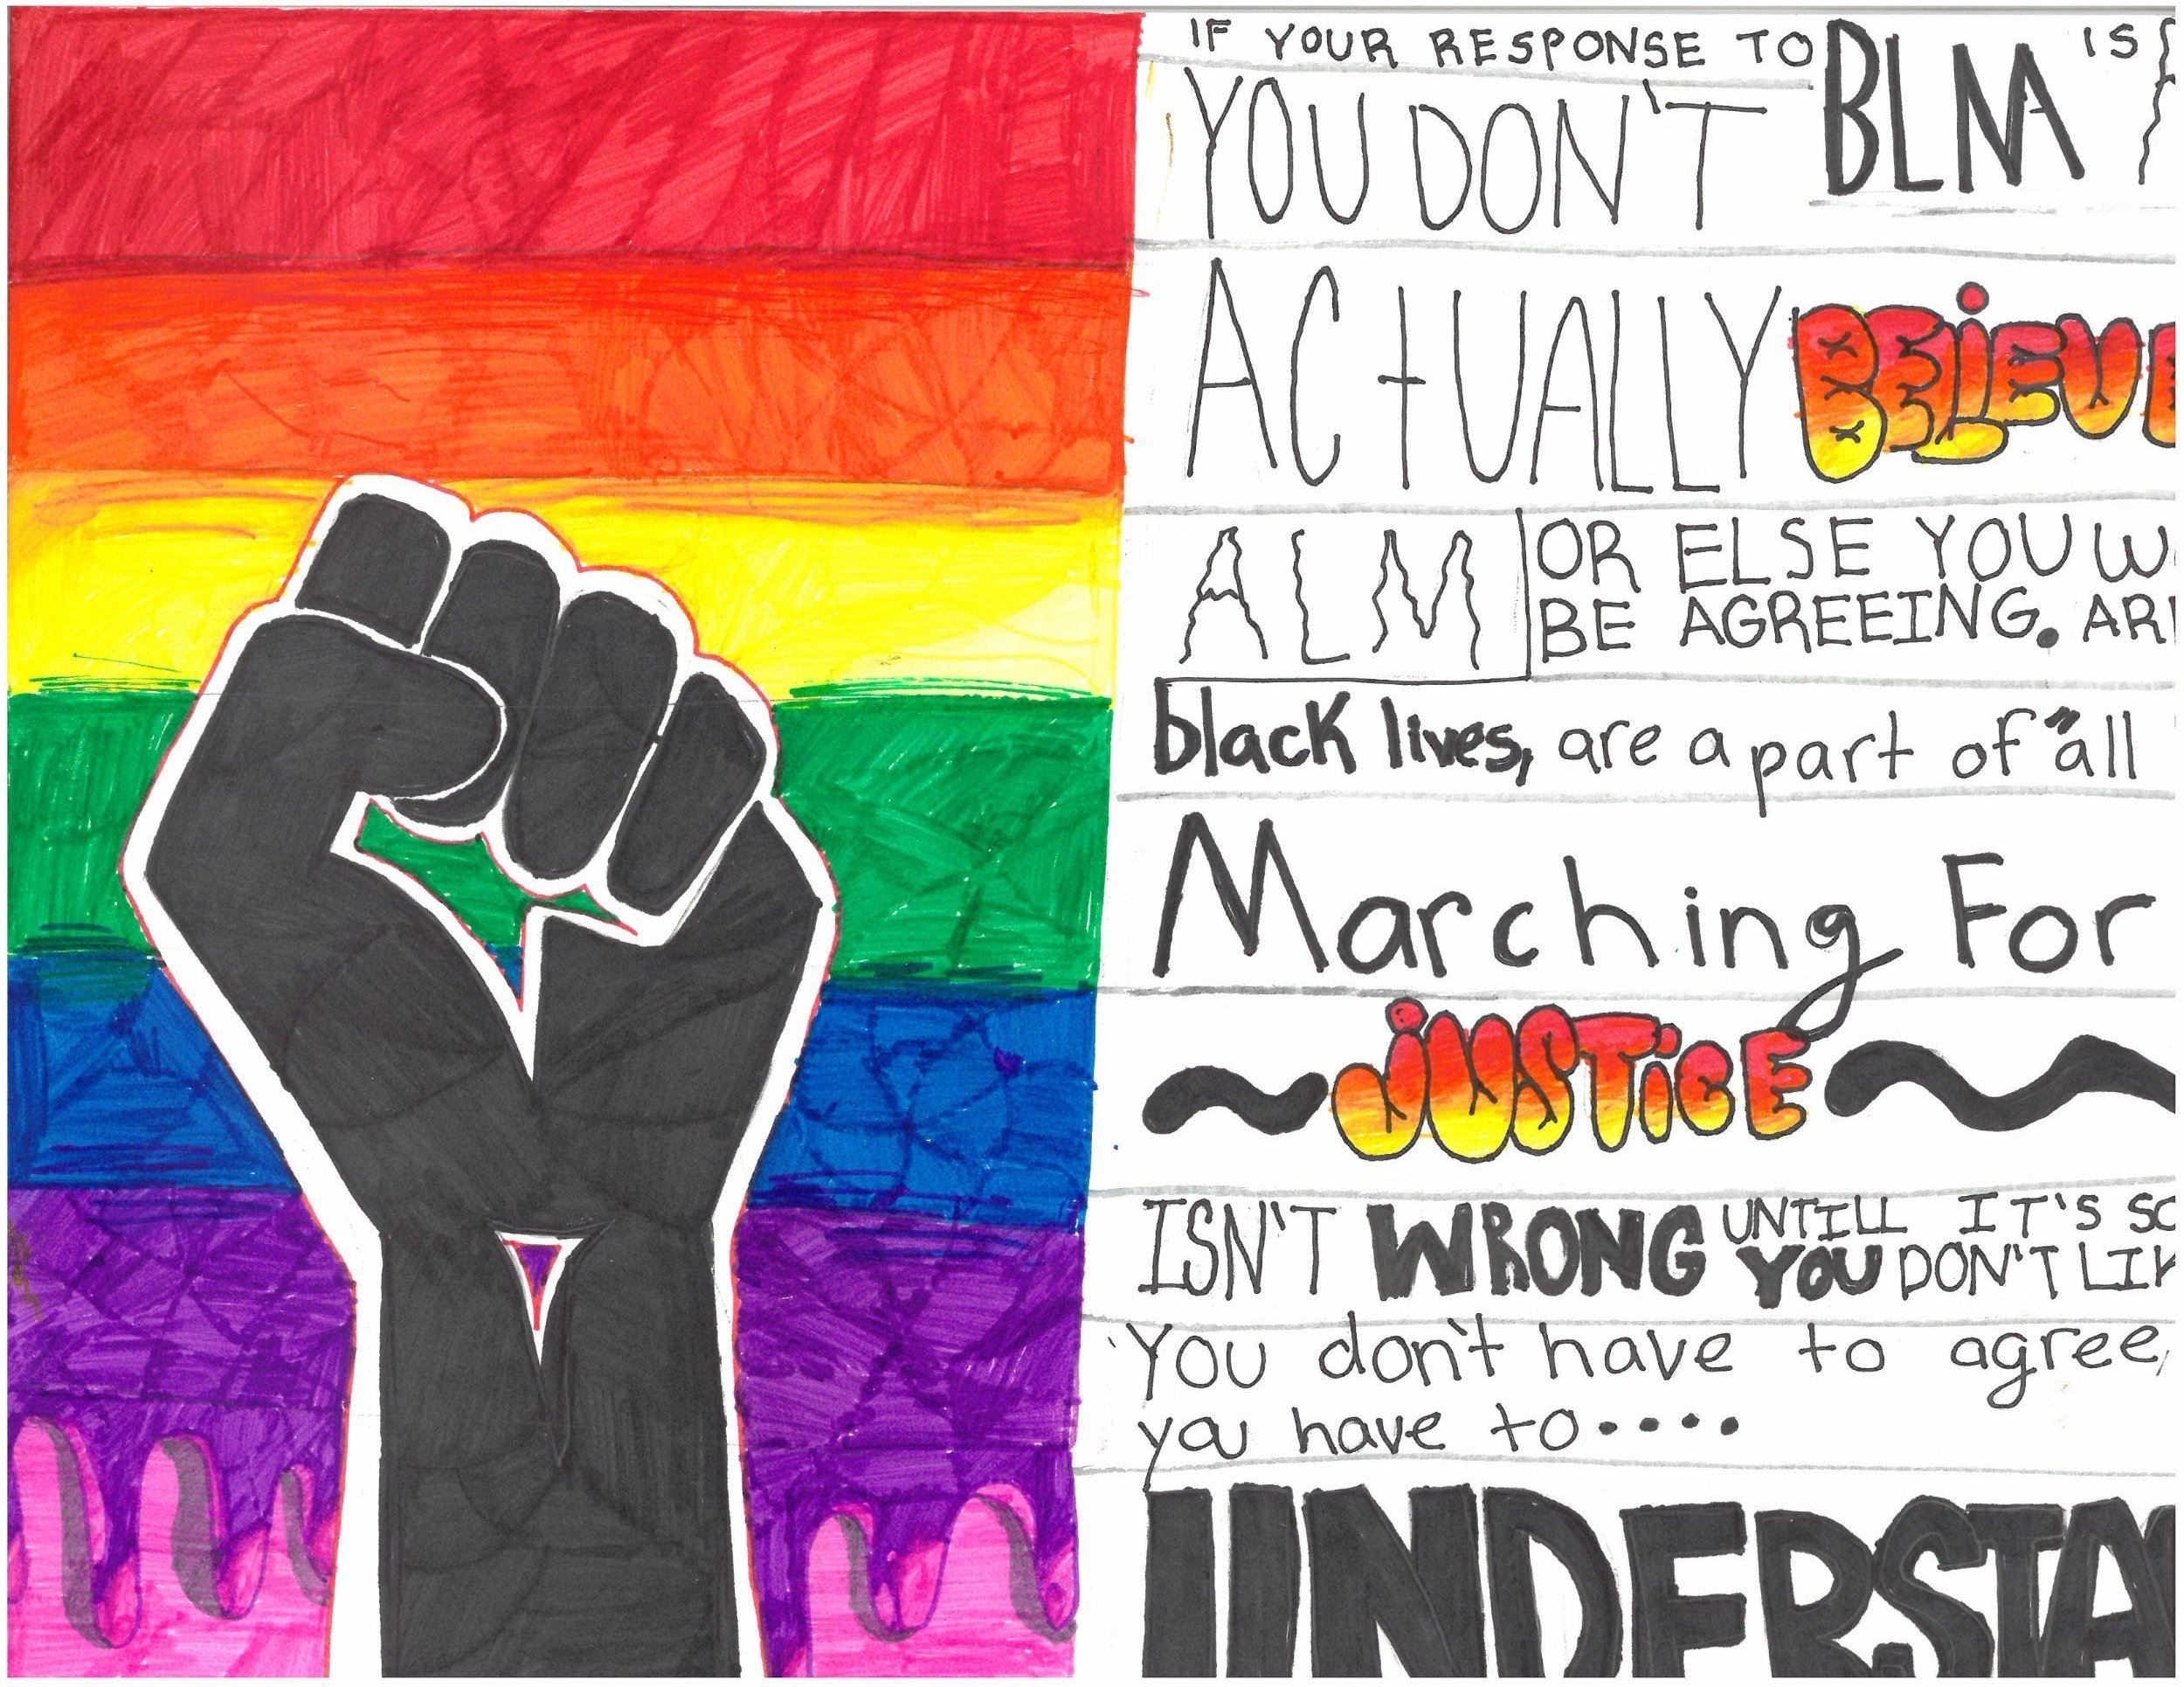 IF YOUR RESPONSE TO BLM IS
YOU DON'T
ACtUALLY BELiEVE
ALM
OR ELSE YOU
BE AGREEING.
black lives, are a part of "all
Marching For
JUSTiCE
ISN'T WRONG UNTILL IT'S
YOU DON'T
You don't have to agree,
you have to....